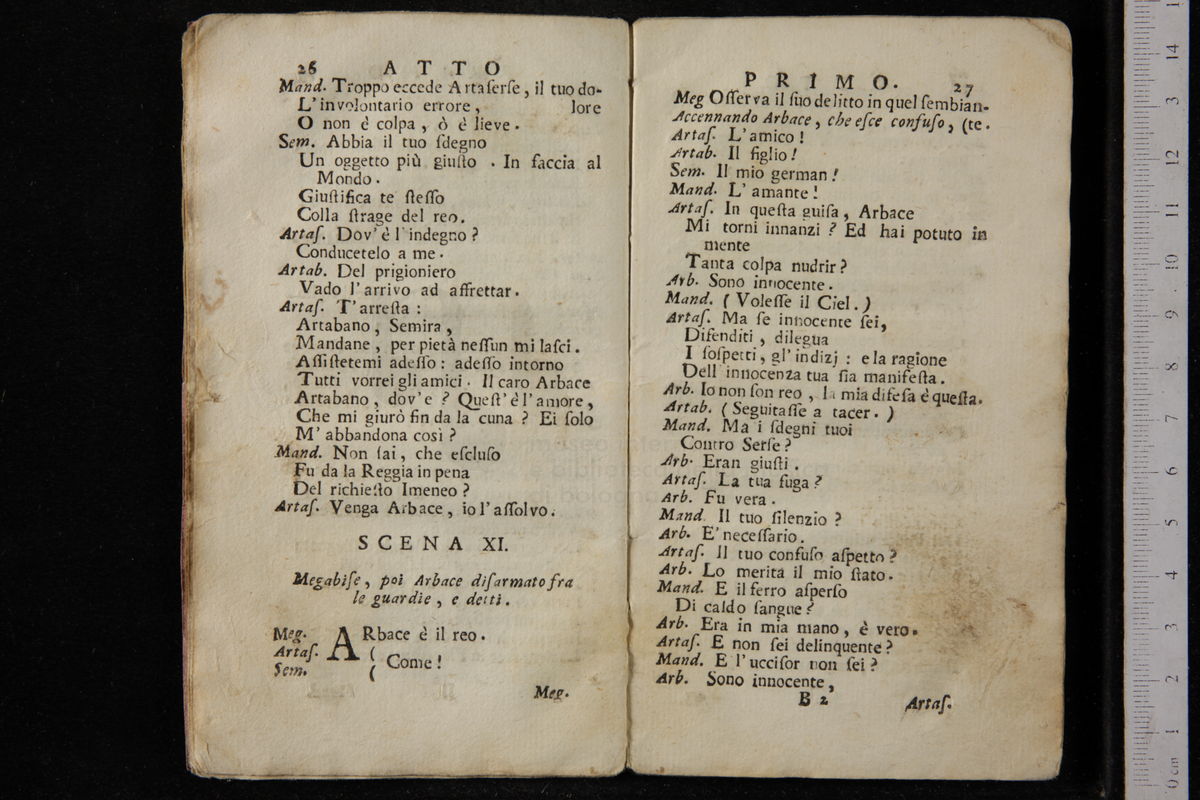 26 ATTO
Mand. Troppo eccede Artaſerſe, il tuo do-
L'involontario errore, lore
O non è colpa, ò è lieve.
Sem. Abbia il tuo ſdegno
Un oggetto più giuſto . In faccia al
Mondo.
Giuſtifica te ſteſſo
Colla ſtrage del reo.
Artaſ. Dov'è l'indegno?
Conducetelo a me.
Artab. Del prigioniero
Vado l'arrivo ad affrettar.
Artaſ. T'arreſta:
Artabano, Semira,
Mandane, per pietà neſſun mi laſci.
Aſſiſtetemi adeſſo: adeſſo intorno
Tutti vorrei gli amici. Il caro Arbace
Artabano, dov'e? Queſt'è l'amore,
Che mi giurò fin da la cuna? Ei ſolo
M'abbandona così?
Mand. Non ſai, che eſcluſo
Fu da la Reggia in pena
Del richieſto Imeneo?
Artaſ. Venga Arbace, io l'aſſolvo.
SCENA XI.
Megabiſe, poi Arbace diſarmato fra
le guardie, e detti.
Meg. ARbace è il reo.
Artaſ. (
Come!
Sem. (
Meg.
PRIMO. 27
Meg Oſſerva il ſuo delitto in quel ſembian-
Accennando Arbace, che eſce confuſo, (te.
Artaſ. L'amico!
Artab. Il figlio!
Sem. Il mio german!
Mand. L'amante!
Artaſ. In queſta guiſa, Arbace
Mi torni innanzi? Ed hai potuto in
mente
Tanta colpa nudrir?
Arb. Sono innocente.
Mand. (Voleſſe il Ciel.)
Artaſ. Ma ſe innocente ſei,
Difenditi, dilegua
I ſoſpetti, gl'indizj: e la ragione
Dell innocenza tua ſia manifeſta.
Arb. Io non ſon reo, la mia difeſa è queſta.
Artab. (Seguitaſſe a tacer.)
Mand. Ma i ſdegni tuoi
Contro Serſe?
Arb. Eran giuſti.
Artaſ. La tua fuga?
Arb. Fu vera.
Mand. Il tuo ſilenzio?
Arb. E'neceſſario.
Artaſ. Il tuo confuſo aſpetto?
Arb. Lo merita il mio ſtato.
Mand. E il ferro aſperſo
Di caldo ſangue?
Arb. Era in mia mano, è vero.
Artaſ. E non ſei delinquente?
Mand. E l'ucciſor non ſei?
Arb. Sono innocente,
B 2 Artaſ.